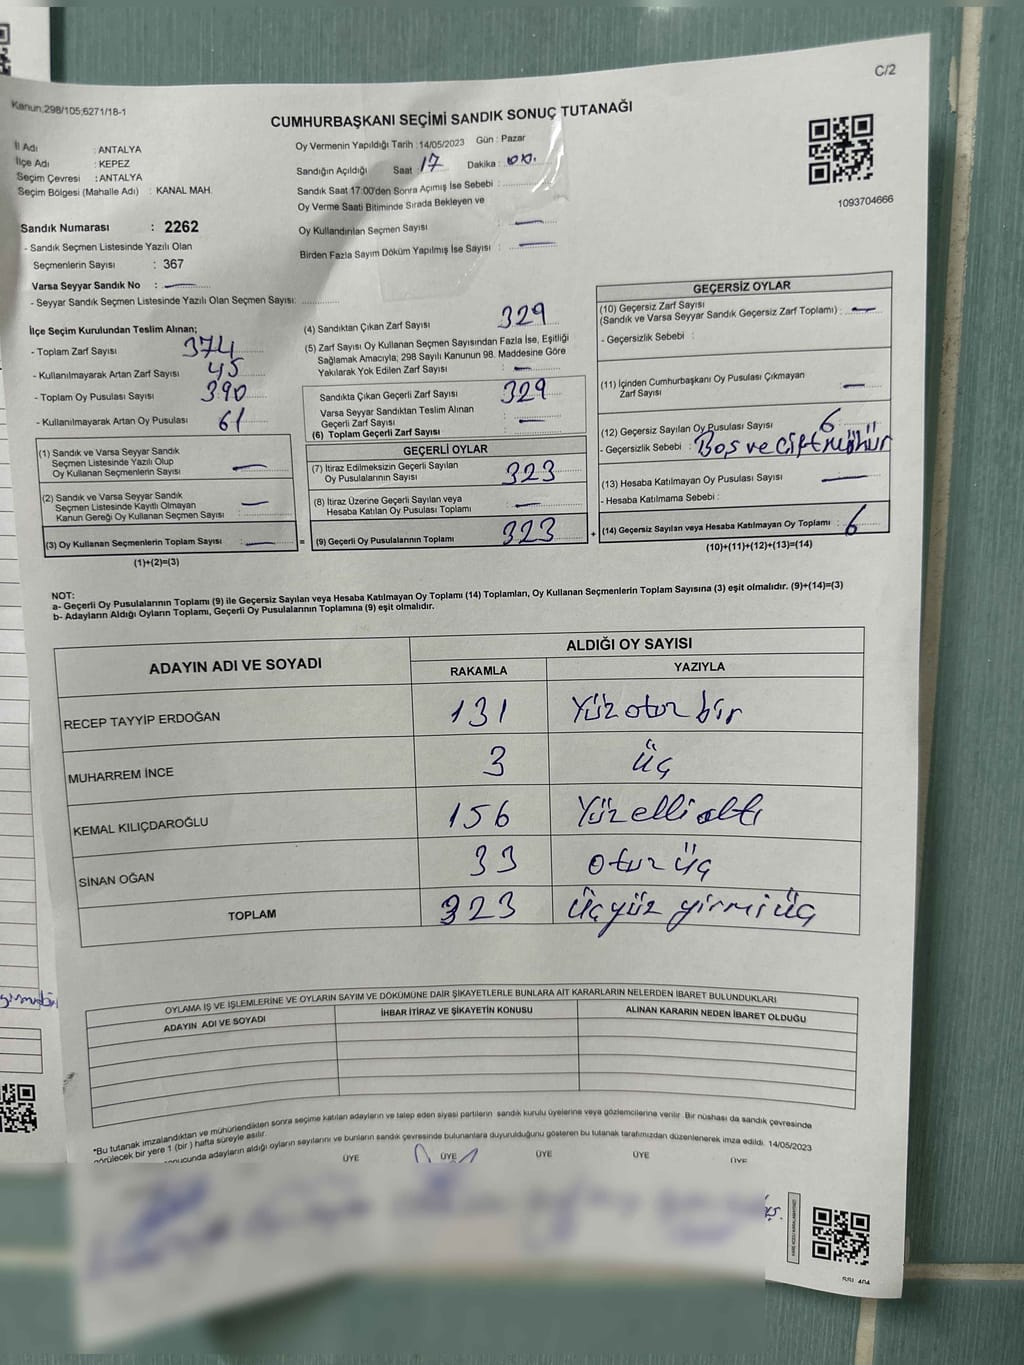 C/2
Kanun;298/105;6271/18-1
CUMHURBAŞKANI SEÇİMİ SANDIK SONUÇ TUTANAĞI
İl Adı : ANTALYA
İlçe Adı : KEPEZ
Seçim Çevresi : ANTALYA
Seçim Bölgesi (Mahalle Adı) : KANAL MAH.
Oy Vermenin Yapıldığı Tarih : 14/05/2023 Gün : Pazar
Sandığın Açıldığı Saat : 17 Dakika : 00.
Sandık Saat 17:00'den Sonra Açımış İse Sebebi :
Oy Verme Saati Bitiminde Sırada Bekleyen ve
Oy Kullandırılan Seçmen Sayısı : —
Birden Fazla Sayım Döküm Yapılmış İse Sayısı : —
1093704666
Sandık Numarası : 2262
- Sandık Seçmen Listesinde Yazılı Olan
Seçmenlerin Sayısı : 367
Varsa Seyyar Sandık No : —
- Seyyar Sandık Seçmen Listesinde Yazılı Olan Seçmen Sayısı:
İlçe Seçim Kurulundan Teslim Alınan;
- Toplam Zarf Sayısı 374
- Kullanılmayarak Artan Zarf Sayısı 45
- Toplam Oy Pusulası Sayısı 390
- Kullanılmayarak Artan Oy Pusulası 61
(1) Sandık ve Varsa Seyyar Sandık
Seçmen Listesinde Yazılı Olup
Oy Kullanan Seçmenlerin Sayısı —
(2) Sandık ve Varsa Seyyar Sandık
Seçmen Listesinde Kayıtlı Olmayan
Kanun Gereği Oy Kullanan Seçmen Sayısı —
(3) Oy Kullanan Seçmenlerin Toplam Sayısı : —
(1)+(2)=(3)
=
(4) Sandıktan Çıkan Zarf Sayısı 329
(5) Zarf Sayısı Oy Kullanan Seçmen Sayısından Fazla İse, Eşitliği
Sağlamak Amacıyla; 298 Sayılı Kanunun 98. Maddesine Göre
Yakılarak Yok Edilen Zarf Sayısı : —
Sandıkta Çıkan Geçerli Zarf Sayısı 329
Varsa Seyyar Sandıktan Teslim Alınan
Geçerli Zarf Sayısı : —
(6) Toplam Geçerli Zarf Sayısı :
GEÇERLİ OYLAR
(7) İtiraz Edilmeksizin Geçerli Sayılan
Oy Pusulalarının Sayısı 323
(8) İtiraz Üzerine Geçerli Sayılan veya
Hesaba Katılan Oy Pusulası Toplamı : —
(9) Geçerli Oy Pusulalarının Toplamı 323
+
GEÇERSİZ OYLAR
(10) Geçersiz Zarf Sayısı
(Sandık ve Varsa Seyyar Sandık Geçersiz Zarf Toplamı) : —
- Geçersizlik Sebebi :
(11) İçinden Cumhurbaşkanı Oy Pusulası Çıkmayan
Zarf Sayısı —
(12) Geçersiz Sayılan Oy Pusulası Sayısı 6
- Geçersizlik Sebebi : Boş ve Çift mühür
(13) Hesaba Katılmayan Oy Pusulası Sayısı —
- Hesaba Katılmama Sebebi :
(14) Geçersiz Sayılan veya Hesaba Katılmayan Oy Toplamı : 6
(10)+(11)+(12)+(13)=(14)
NOT:
a- Geçerli Oy Pusulalarının Toplamı (9) ile Geçersiz Sayılan veya Hesaba Katılmayan Oy Toplamı (14) Toplamları, Oy Kullanan Seçmenlerin Toplam Sayısına (3) eşit olmalıdır. (9)+(14)=(3)
b- Adayların Aldığı Oyların Toplamı, Geçerli Oy Pusulalarının Toplamına (9) eşit olmalıdır.
ADAYIN ADI VE SOYADI ALDIĞI OY SAYISI
RAKAMLA YAZIYLA
RECEP TAYYİP ERDOĞAN 131 Yüz otuz bir
MUHARREM İNCE 3 üç
KEMAL KILIÇDAROĞLU 156 Yüz elli altı
SİNAN OĞAN 33 otuz üç
TOPLAM 323 üçyüz yirmi üç
OYLAMA İŞ VE İŞLEMLERİNE VE OYLARIN SAYIM VE DÖKÜMÜNE DAİR ŞİKAYETLERLE BUNLARA AİT KARARLARIN NELERDEN İBARET BULUNDUKLARI
ADAYIN ADI VE SOYADI İHBAR İTİRAZ VE ŞİKAYETİN KONUSU ALINAN KARARIN NEDEN İBARET OLDUĞU
*Bu tutanak imzalandıktan ve mühürlendikten sonra seçime katılan adayların ve talep eden siyasi partilerin sandık kurulu üyelerine veya gözlemcilerine verilir. Bir nüshası da sandık çevresinde
görülecek bir yere 1 (bir ) hafta süreyle asılır.
adayların aldığı oyların sayılarını ve bunların sandık çevresinde bulunanlara duyurulduğunu gösteren bu tutanak tarafımızdan düzenlenerek imza edildi. 14/05/2023
ÜYE ÜYE ÜYE ÜYE ÜYE